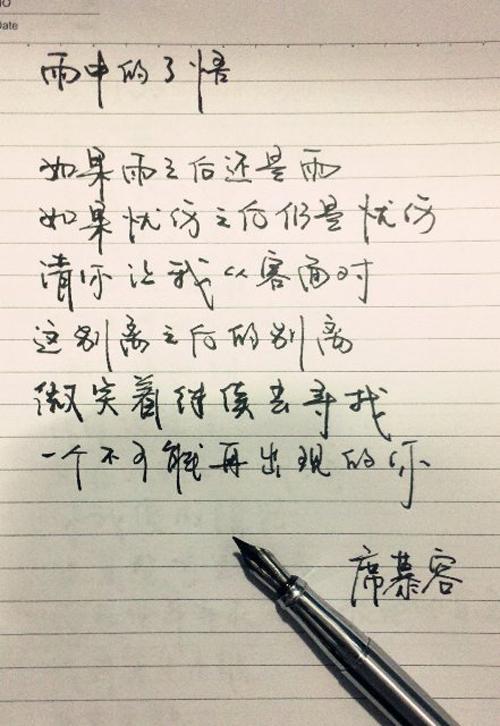 NO
Date
雨中的了悟
如果雨之后还是雨
如果忧伤之后仍是忧伤
请你让我从容面对
这别离之后的别离
微笑着继续去寻找
一个不可能再出现的你
席慕容